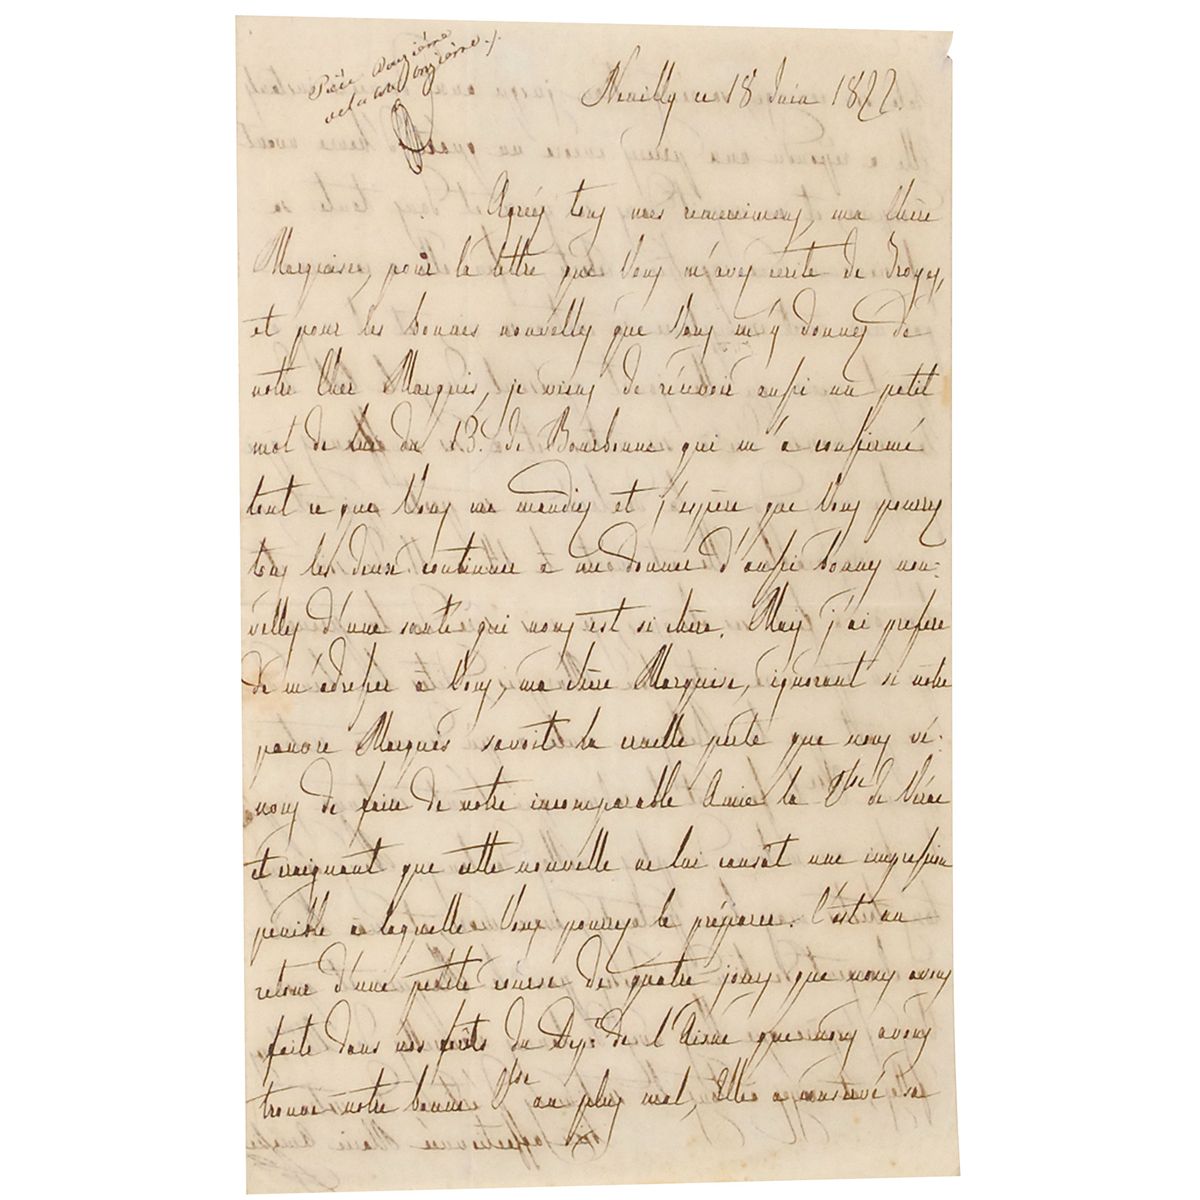 Pièce douzième
de la cote onzième ./.
Neuilly ce 18 Juin 1822.
Agréez tous mes remercimens, ma Chère
Marquise, pour la lettre que Vous m'avez écrite de Troyes,
et pour les bonnes nouvelles que Vous m'y donnez de
notre Cher Marquis, je viens de récevoir aussi un petit
mot de lui du 13. de Bourbonne qui m'a confirmé
tout ce que Vous me mandiez et j'espère que Vous pourrez
tous les deux continuer à me donner d'aussi bonnes nou-
velles d'une santé qui nous est si chère. Mais j'ai préferé
de m'adresser à Vous, ma chère Marquise, ignorant si notre
pauvre Marquis savoit la cruelle perte que nous ve-
nons de faire de notre incomparable Amie la Vsse de Vérac
et craignant que cette nouvelle ne lui causât une impression
penible à laquelle Vous pourrez le préparer. C'est au
retour d'une petite course de quatre jours que nous avons
faite dans nos forêts du Depr. de l'Aisne que nous avons
trouvé notre bonne Vsse au plus mal, Elle a conservé sa